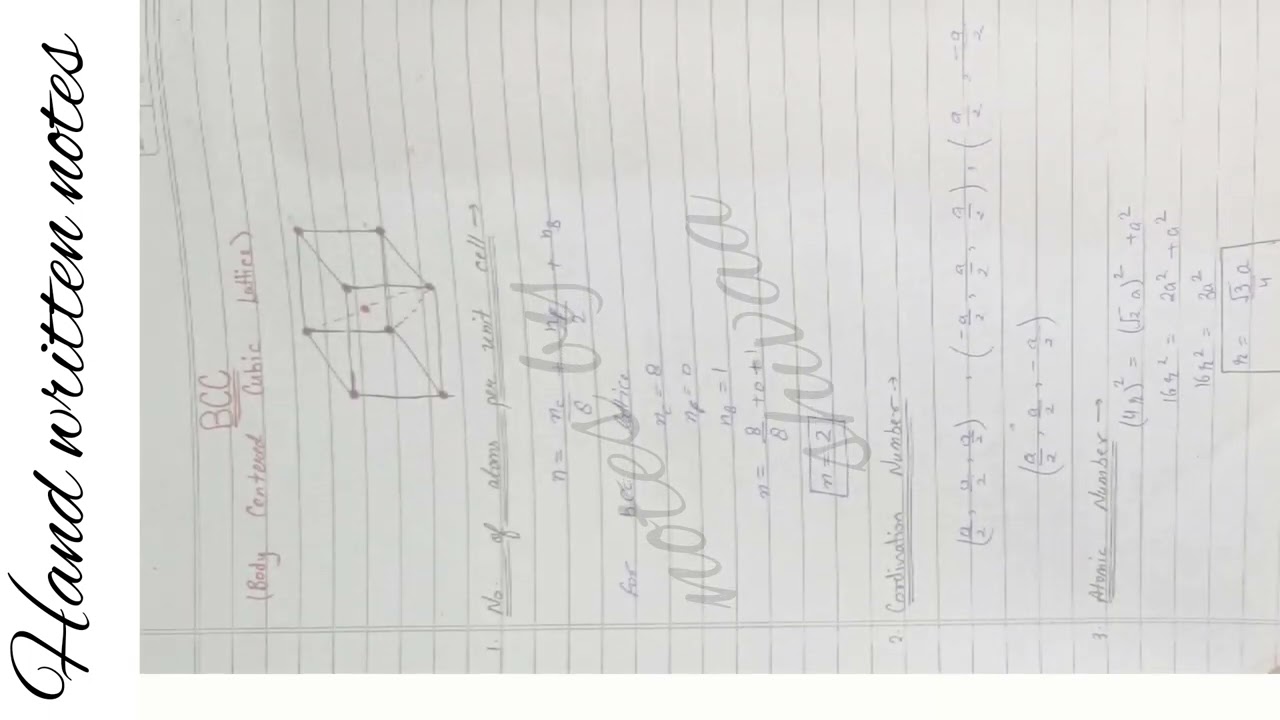 Hand written notes
BCC
(Body Centered Cubic Lattice)
1. No. of atoms per unit cell →
n = nc/8 + nf/2 + nB
For BCC lattice
nc = 8
nf = 0
nB = 1
n = 8/8 + 0 + 1
n = 2
notes by shivaa
2. Cordination Number →
(a/2, a/2, a/2), (-a/2, a/2, a/2), (a/2, -a/2
(a/2, a/2, -a/2)
3. Atomic Number →
(4r)² = (√2 a)² + a²
16r² = 2a² + a²
16r² = 3a²
r = √3a/4